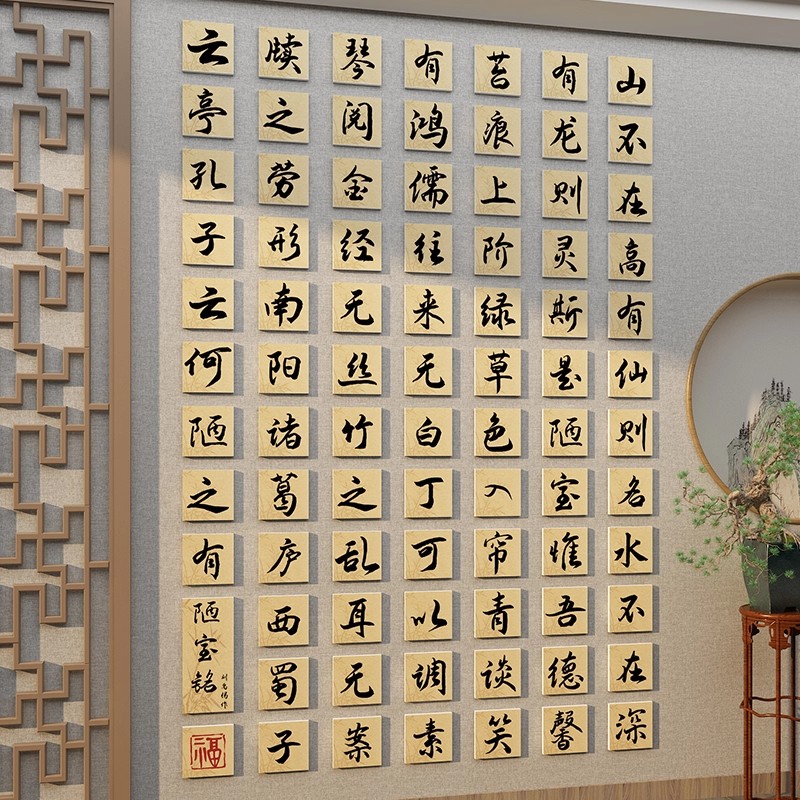 山不在高有仙则名水不在深
有龙则灵斯是陋室惟吾德馨
苔痕上阶绿草色入帘青谈笑
有鸿儒往来无白丁可以调素
琴阅金经无丝竹之乱耳无案
牍之劳形南阳诸葛庐西蜀子
云亭孔子云何陋之有
陋室铭
刘禹锡作
福